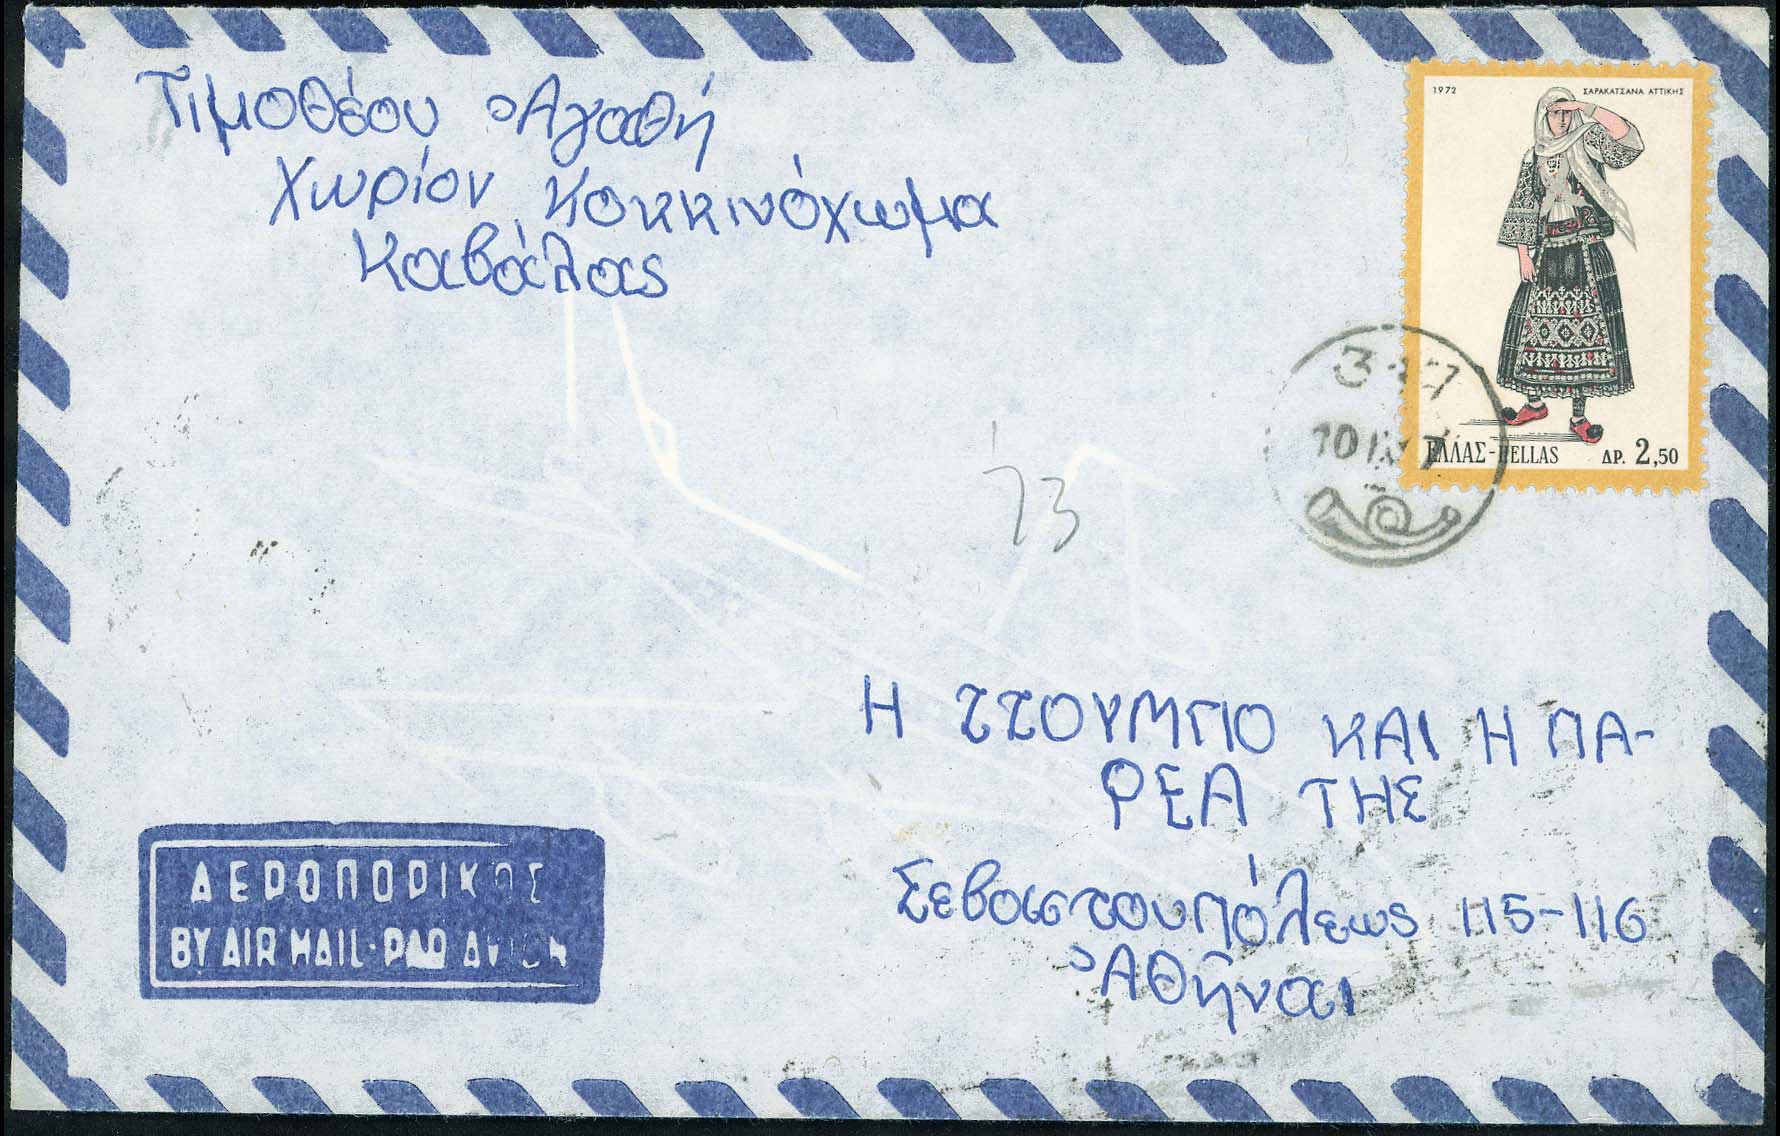 Τιμοθέου Ἀγαθή
Χωρίον Κοκκινόχωμα
Καβάλας
1972 ΣΑΡΑΚΑΤΣΑΝΑ ΑΤΤΙΚΗΣ
ΕΛΛΑΣ-HELLAS ΔΡ. 2,50
73
Η ΤΤΟΥΜΠΟ ΚΑΙ Η ΠΑ-
ΡΕΑ ΤΗΣ
Σεβαστουπόλεως 115-116
Ἀθῆναι
ΑΕΡΟΠΟΡΙΚΩΣ
BY AIR MAIL·PAR AVION